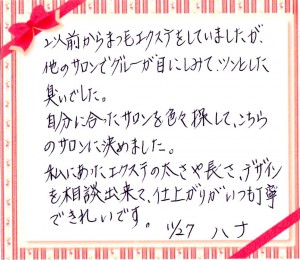 以前からまつ毛エクステをしていましたが、
他のサロンでグルーが目にしみて、ツンとした
臭いでした。
自分に合ったサロンを色々探して、こちら
のサロンに決めました。
私にあたエクステの太さや長さ、デザイン
を相談出来て、仕上がりがいつも丁寧
できれいです。
11/27 ハナ